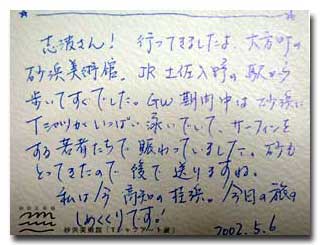 志波さん! 行ってきましたよ、大方町の
砂浜美術館。JR土佐入野の駅から
歩いてすぐでした。GW期間中は砂浜に
Tシャツがいっぱい泳いでいて、サーフィンを
する若者たちで賑わっていました。砂も
とってきたので後で送りますね。
私は今 高知の桂浜。今日の旅の
しめくくりです!
2002.5.6
砂浜美術館(Tシャツアート展)